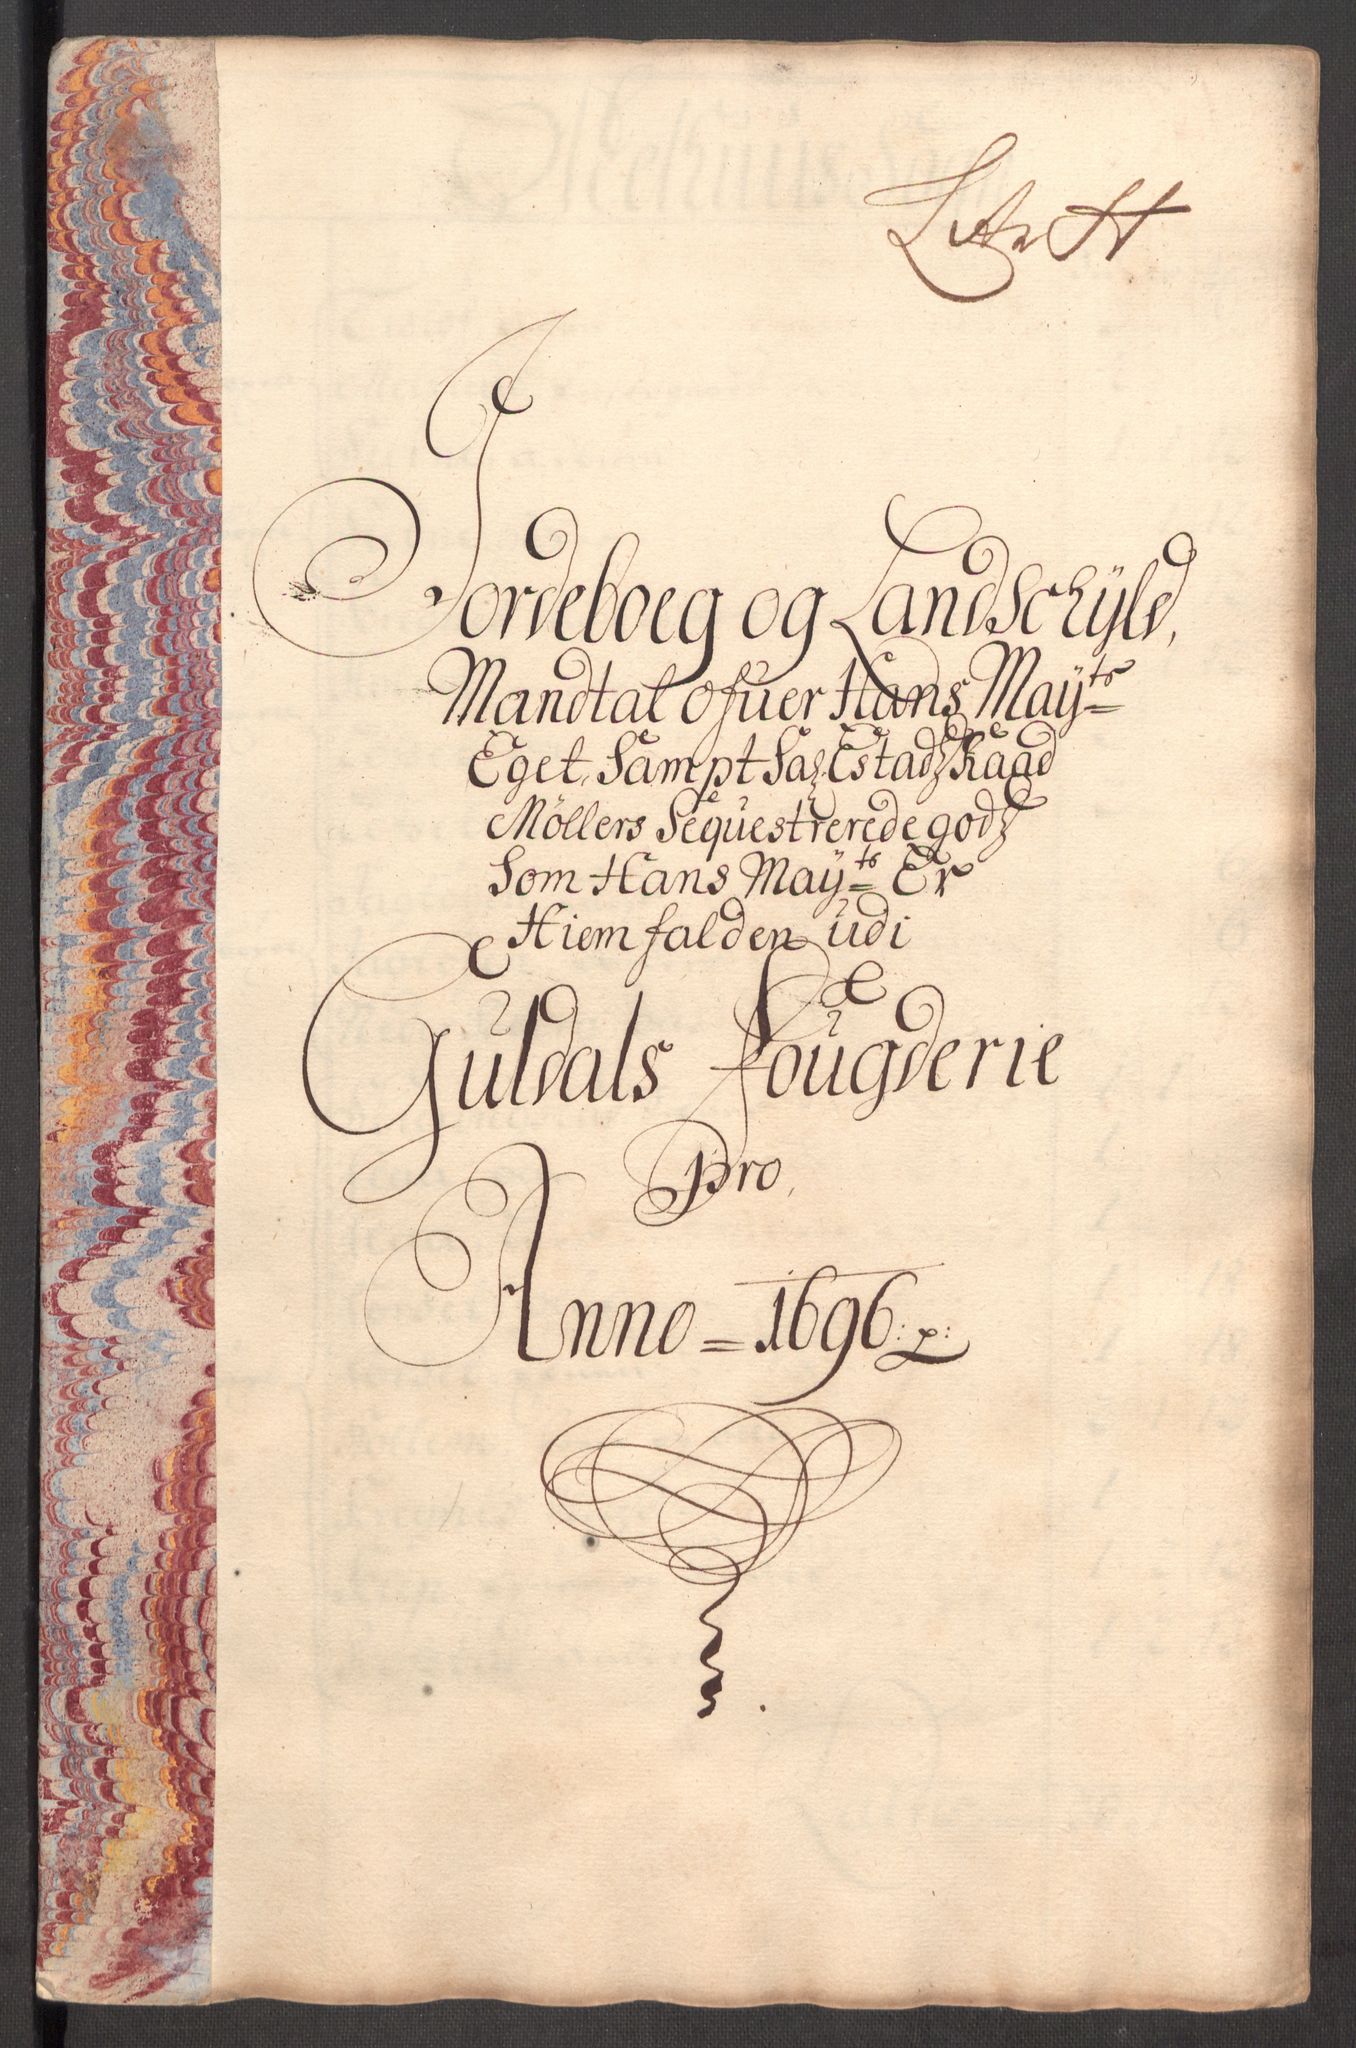 Litr H
Jordeboeg og Landschÿld,
Mandtal ofuer Hans Maÿ:ts
Eget, Sampt Sal: Estadz Raad
Möllers Seqvestrerede godz
Som Hans Maÿ:ts Er
Hiemfalden udi
Guldals Fougderie
Pro,
Anno = 1696 :p: